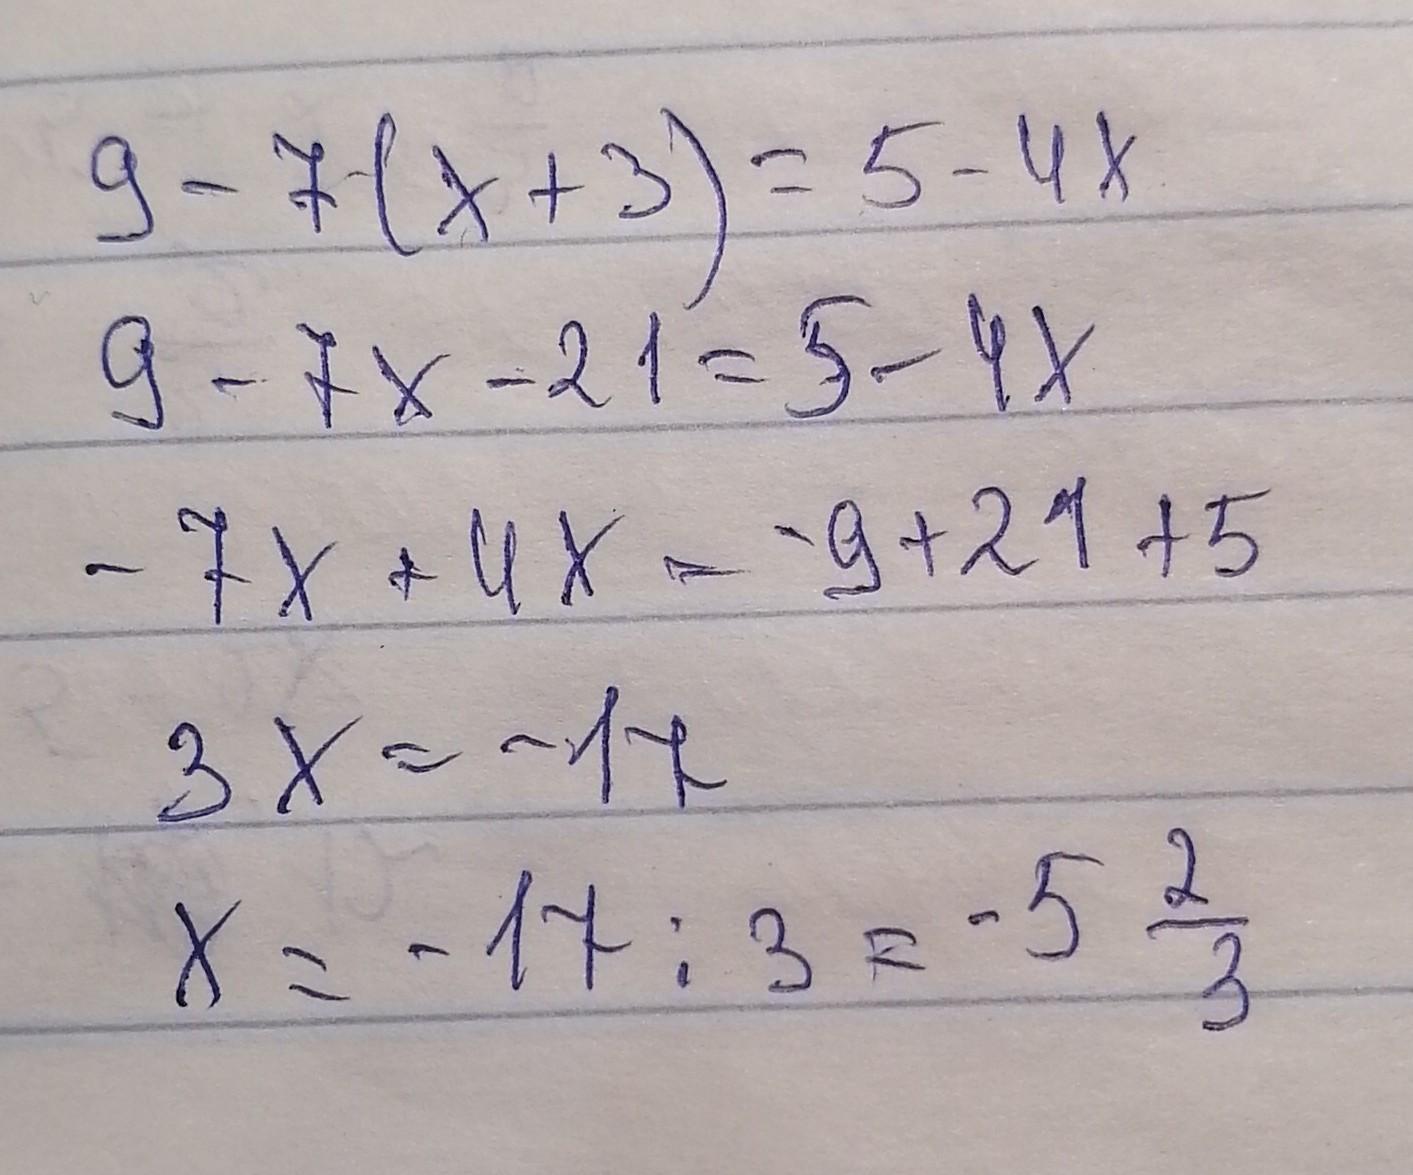 9 - 7(x + 3) = 5 - 4x
9 - 7x - 21 = 5 - 4x
- 7x + 4x = -9 + 21 + 5
3x = -17
x = -17 : 3 = -5 2/3